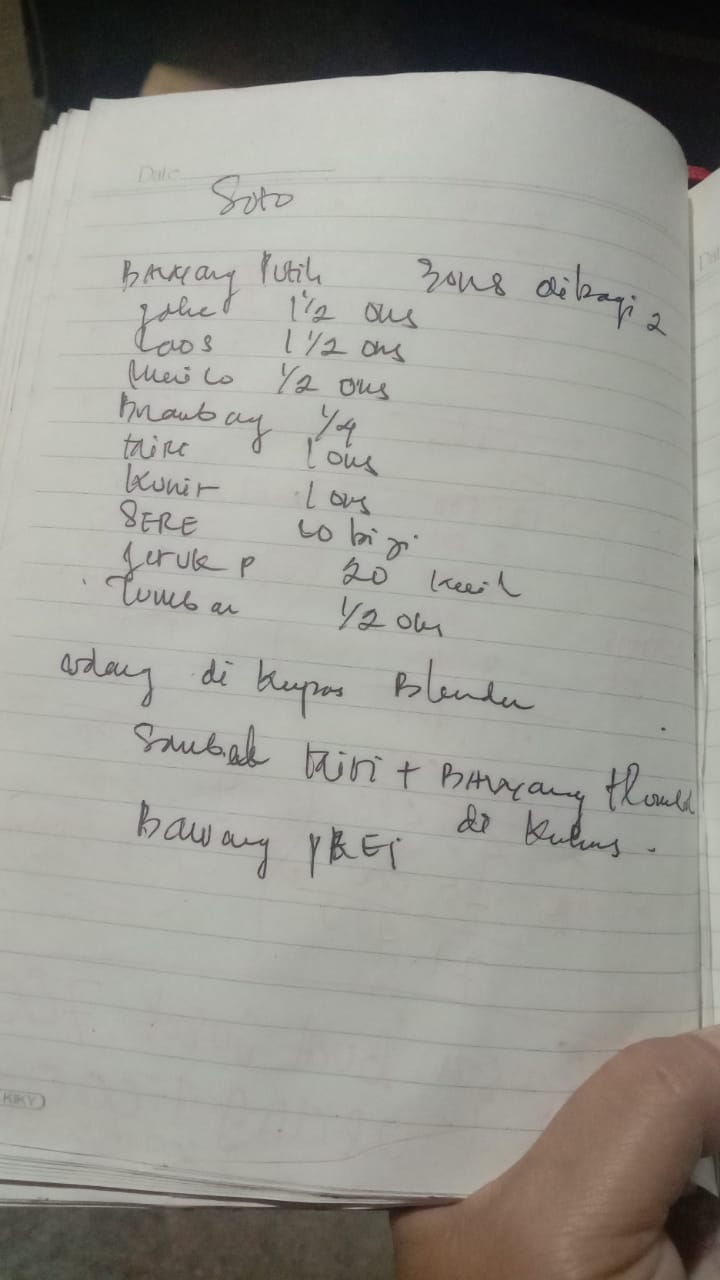 Date
Soto
Bawang Putih 3 ons dibagi 2
Jahe 1 1/2 ons
Laos 1 1/2 ons
Merico 1/2 ons
Brambang 1/4
Miri 1 ons
Kunir 1 ons
SERE 10 biji
Jeruk P 20 kecil
Tumbar 1/2 ons
udang di kupas Blender
Sambal Miri + Bawang
di Kukus.
Bawang PREi
KIKY